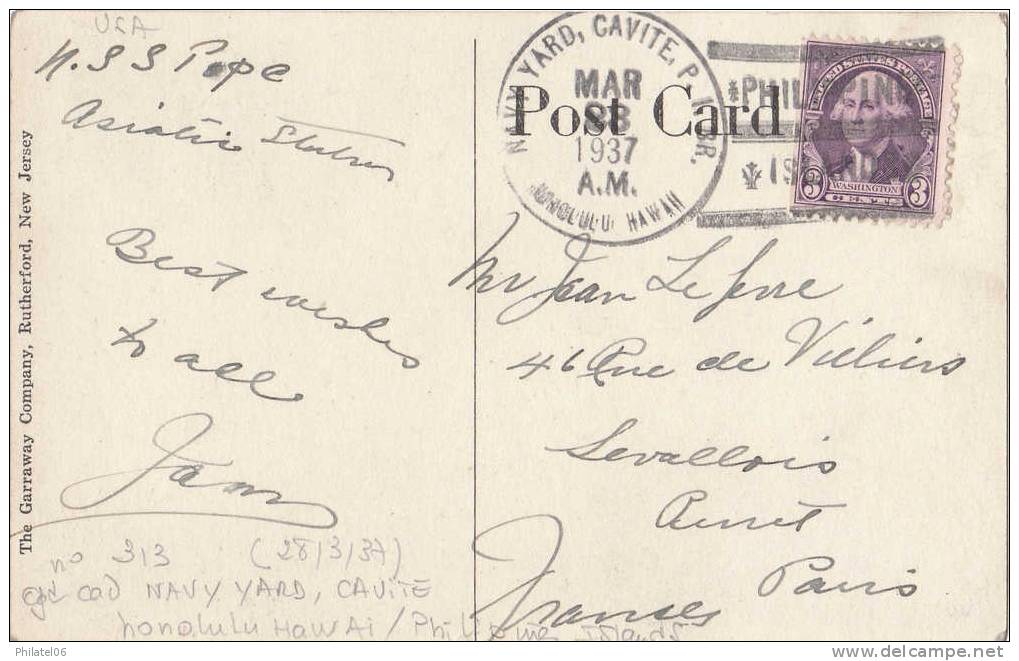 USA
U.S S Pope
Asiatic Station
Best wishes
to all
The Garraway Company, Rutherford, New Jersey
no 313 (28/3/37)
cad NAVY YARD, CAVITE
honolulu HAWAI / Philippines Islands
Post Card
NAVY YARD, CAVITE, P. I. BR.
MAR
1937
A.M.
HONOLULU HAWAII
PHILIPPINE
UNITED STATES POSTAGE
WASHINGTON
3 3
Mr Jean Lefevre
46 Rue de Villiers
Levallois
Perret
Paris
France
Philatel06